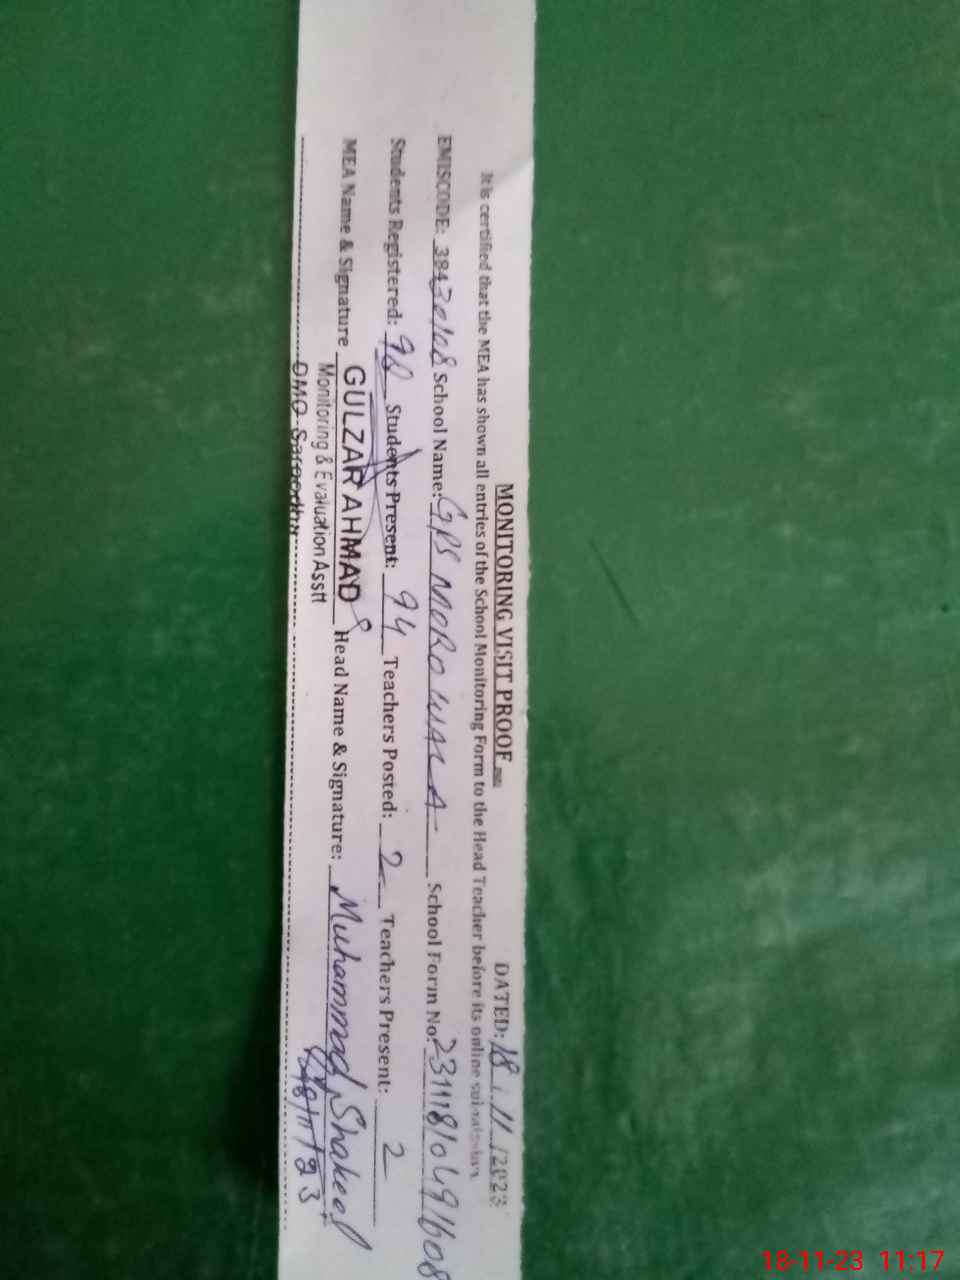 MONITORING VISIT PROOF
DATED: 18/11/2023
It is certified that the MEA has shown all entries of the School Monitoring Form to the Head Teacher before its online submission.
EMISCODE: 38430108 School Name: GPS MORO WALA School Form No: 231118/049/608
Students Registered: 98 Students Present: 94 Teachers Posted: 2 Teachers Present: 2
MEA Name & Signature GULZAR AHMAD Head Name & Signature: Muhammad Shakeel
Monitoring & Evaluation Asstt
DMO Sargodha
18/11/23
18-11-23 11:17